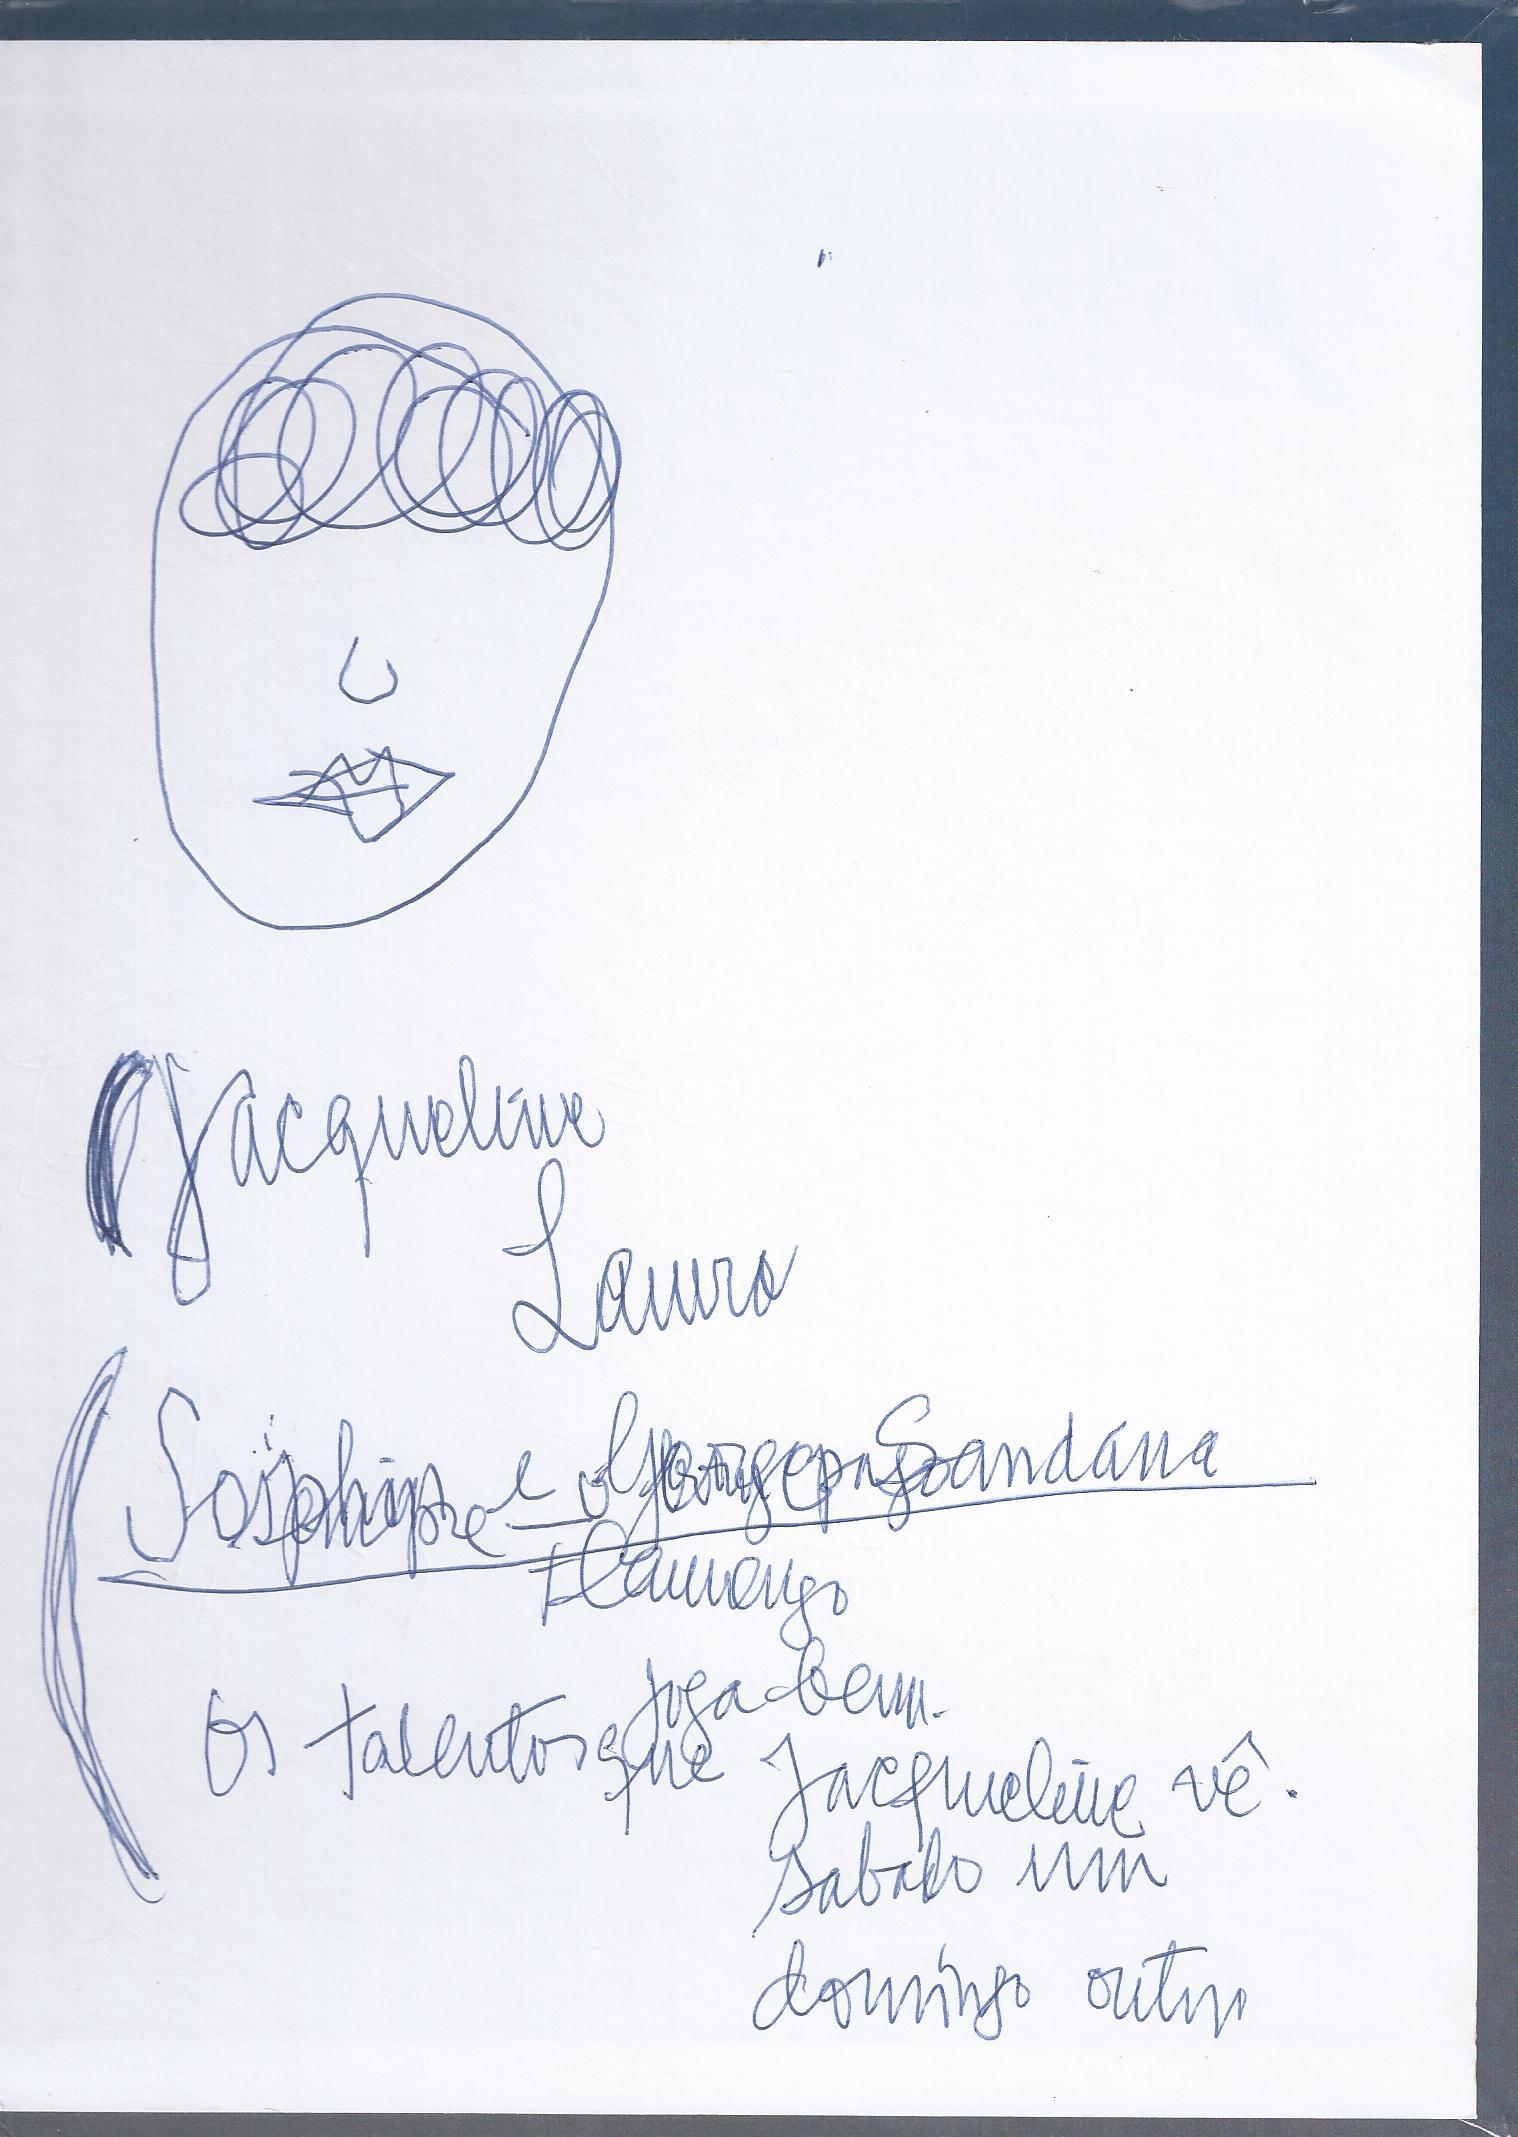 Jacqueline
Lauro
e
Flamengo
joga bem.
Os talentos que Jacqueline vê.
sabado um
domingo outro